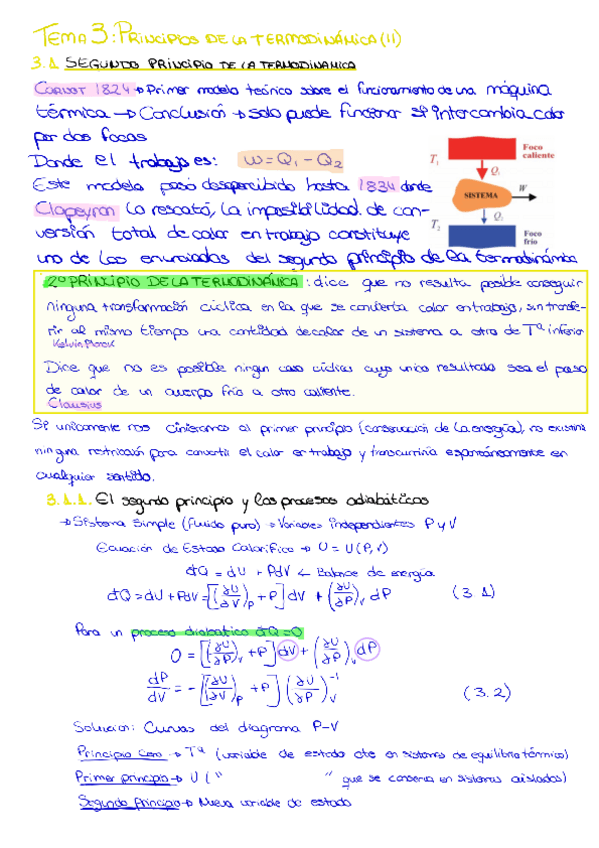 TEMA 3: PRINCIPIOS DE LA TERMODINÁMICA (II)
3.1 SEGUNDO PRINCIPIO DE LA TERMODINAMICA
Carnot 1824 → Primer modelo teórico sobre el funcionamiento de una máquina
térmica → Conclusión → solo puede funcionar si intercambia calor
por dos focos
Donde el trabajo es: W = Q₁ - Q₂
Este modelo pasó desapercibido hasta 1834 donde
Clapeyron lo rescató, la imposibilidad de con-
versión total de calor en trabajo constituye
uno de los enunciados del segundo principio de la termodinámica
Foco caliente
T₁
Q₁
SISTEMA
W
Q₂
T₂
Foco frío
2º PRINCIPIO DE LA TERMODINÁMICA: dice que no resulta posible conseguir
ninguna transformación cíclica en la que se convierta calor en trabajo, sin transfe-
rir al mismo tiempo una cantidad de calor de un sistema a otro de Tª inferior
Kelvin Planck
Dice que no es posible ningún caso cíclico cuyo unico resultado sea el paso
de calor de un cuerpo frío a otro caliente.
Clausius
Si unicamente nos ciñeramos al primer principio (conservación de la energía), no existiria
ninguna restricción para convertir el calor en trabajo y transcurriria espontáneamente en
cualquier sentido.
3.1.1. El segundo principio y los procesos adiabáticos
→ Sistema Simple (fluido puro) → Variables independientes P y V
Ecuación de Estado Calorífico → U = U(P,V)
đQ = dU + PdV ← Balance de energía
đQ = dU + PdV = [(∂U/∂V)_P + P] dV + (∂U/∂P)_V dP (3.1)
Para un proceso diabatico đQ = 0
0 = [(∂U/∂P)_V + P] dV + (∂U/∂P)_V dP
dP/dV = - [(∂U/∂V)_P + P] (∂U/∂P)_V⁻¹ (3.2)
Solucion: Curvas del diagrama P-V
Principio Cero → Tª (variable de estado cte en sistemas de equilibrio térmico)
Primer principio → U (" " que se conserva en sistemas aislados)
Segundo Principio → Nueva variable de estado